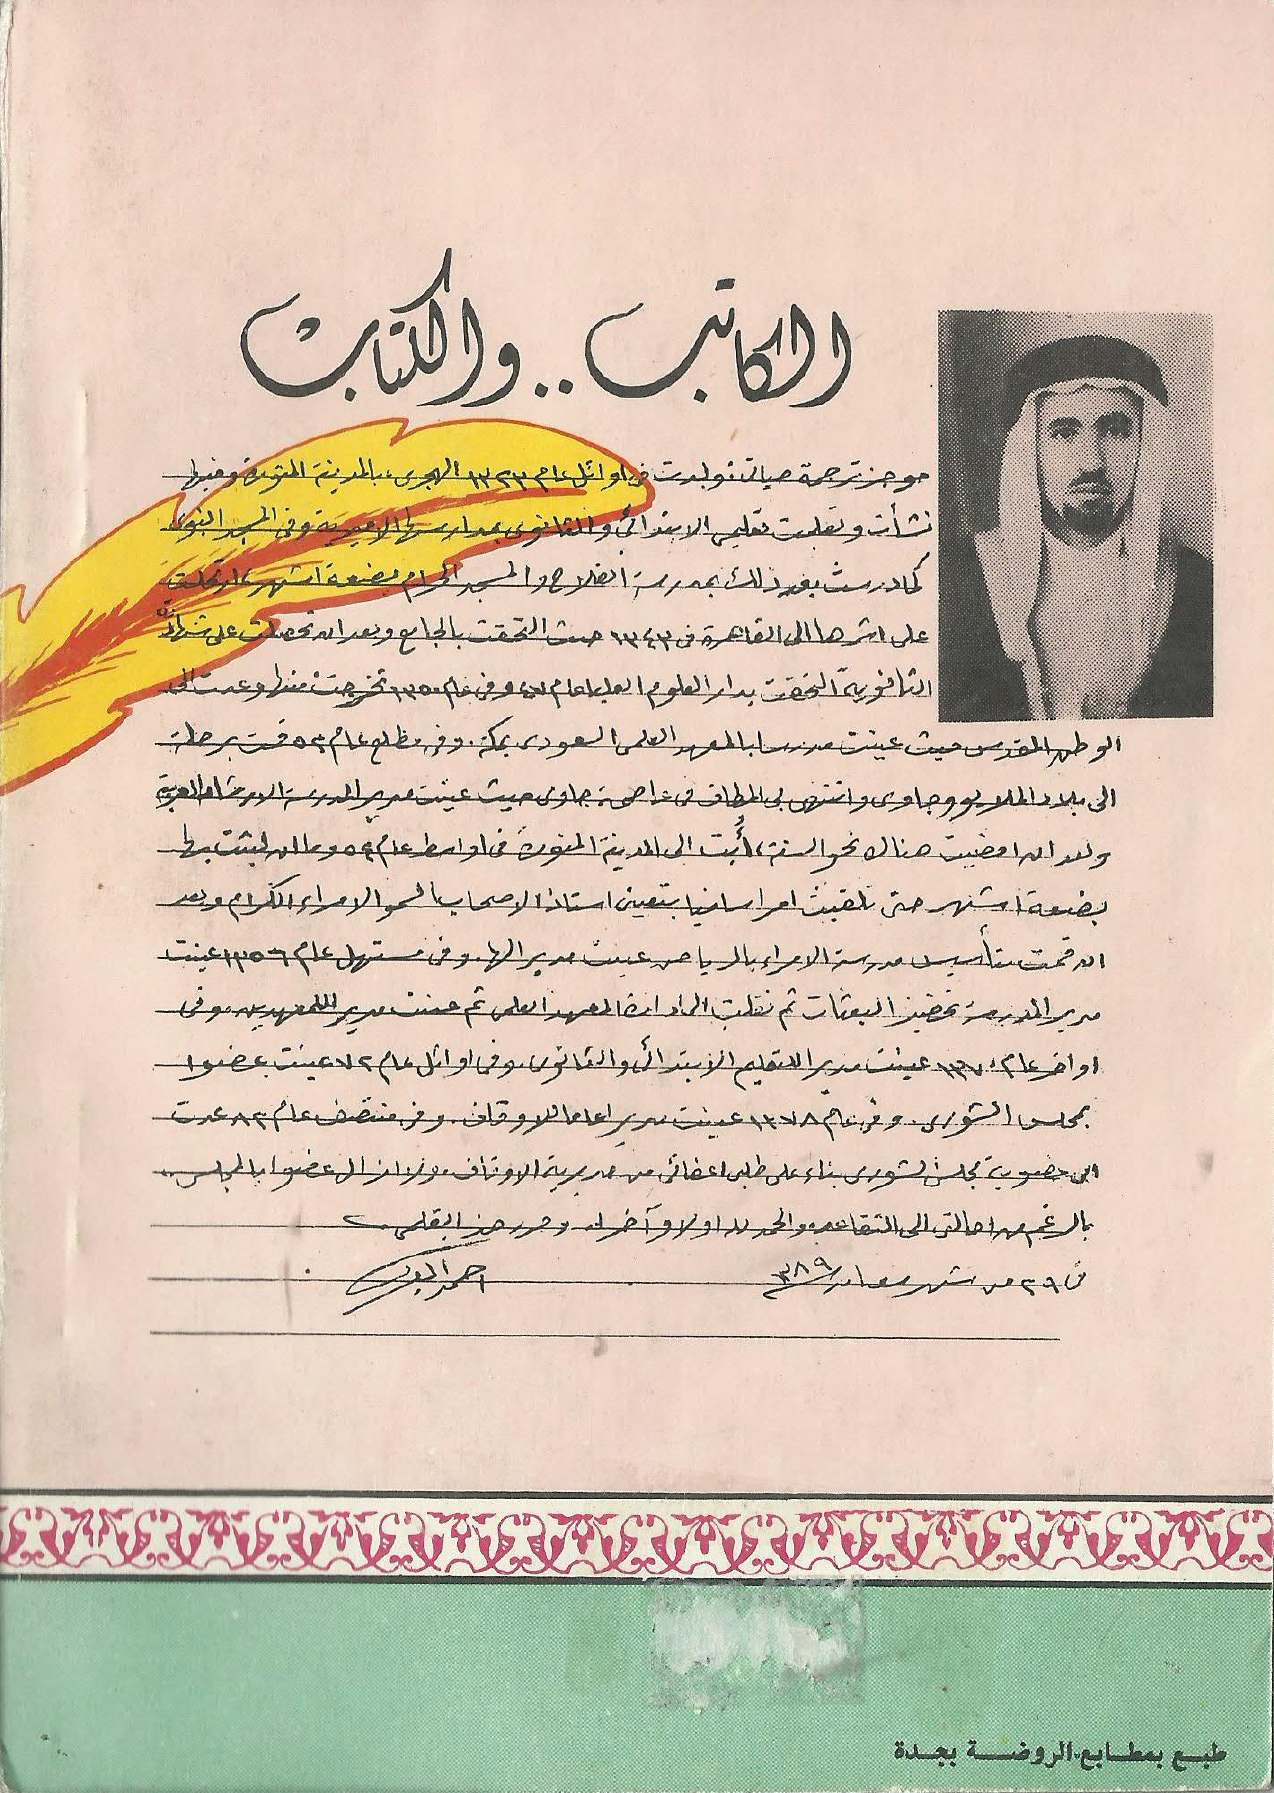 الكاتب .. والكتاب
موجز ترجمة حياتى ولدت فى اوائل عام ١٣٢٣ الهجرى بالمدينة المنورة وفيها
نشأت وتلقيت تعليمى الابتدائى والثانوى بمدارسها الاميرية وفى المسجد النبوى
كما درست بعد ذلك بمدرسة الفلاح والمسجد الحرام بضعة اشهر، ارتحلت
على اثرها الى القاهرة فى ١٣٤٣ حيث التحقت بالجامع وبعد ان تحصلت على شهادته
الثانوية التحقت بدار العلوم العليا عام وفى عام ١٣٥٠ تخرجت منها وعدت الى
الوطن المقدس حيث عينت مدرسا بالمعهد العلمى السعودى بمكة. وفى مطلع عام ٥٣ قمت برحلة
الى بلاد الملايو وجاوى وانتهى بى المطاف فى عاصمة جاوى حيث عينت مدير المدرسة الارشاد العربية
وبعد ان امضيت هناك نحو السنة، أُبت الى المدينة المنورة فى اواسط عام ٥٤ وما ان لبثت بها
بضعة اشهر حتى تلقيت امرا ساميا بتعيين استاذا لاصحاب السمو الامراء الكرام وبعد
ان قمت بتأسيس مدرسة الامراء بالرياض عينت مديرا لها. وفى مستهل عام ١٣٥٦ عينت
مدير المدرسة تحضير البعثات ثم نقلت الى ادارة المعهد العلمى ثم عينت مديرا للمعهدين. وفى
اواخر عام ١٣٧٠ عينت مديرا للتعليم الابتدائى والثانوى. وفى اوائل عام ٧٢ عينت عضوا
بمجلس الشورى. وفى عام ١٣٧٨ عينت مديرا عاما للاوقاف. وفى منتصف عام ٨٢ عدت
الى عضوية مجلس الشورى بناء على طلبى اعفائى من مديرية الاوقاف ولا ازال عضوا بالمجلس
بالرغم من احالتى الى التقاعد والحمد لله اولا وآخرا. وحرر هذا بقلمى
فى ٢٩ من شهر ١٣٨٩ احمد العربى
طبع بمطابع الروضة بجدة